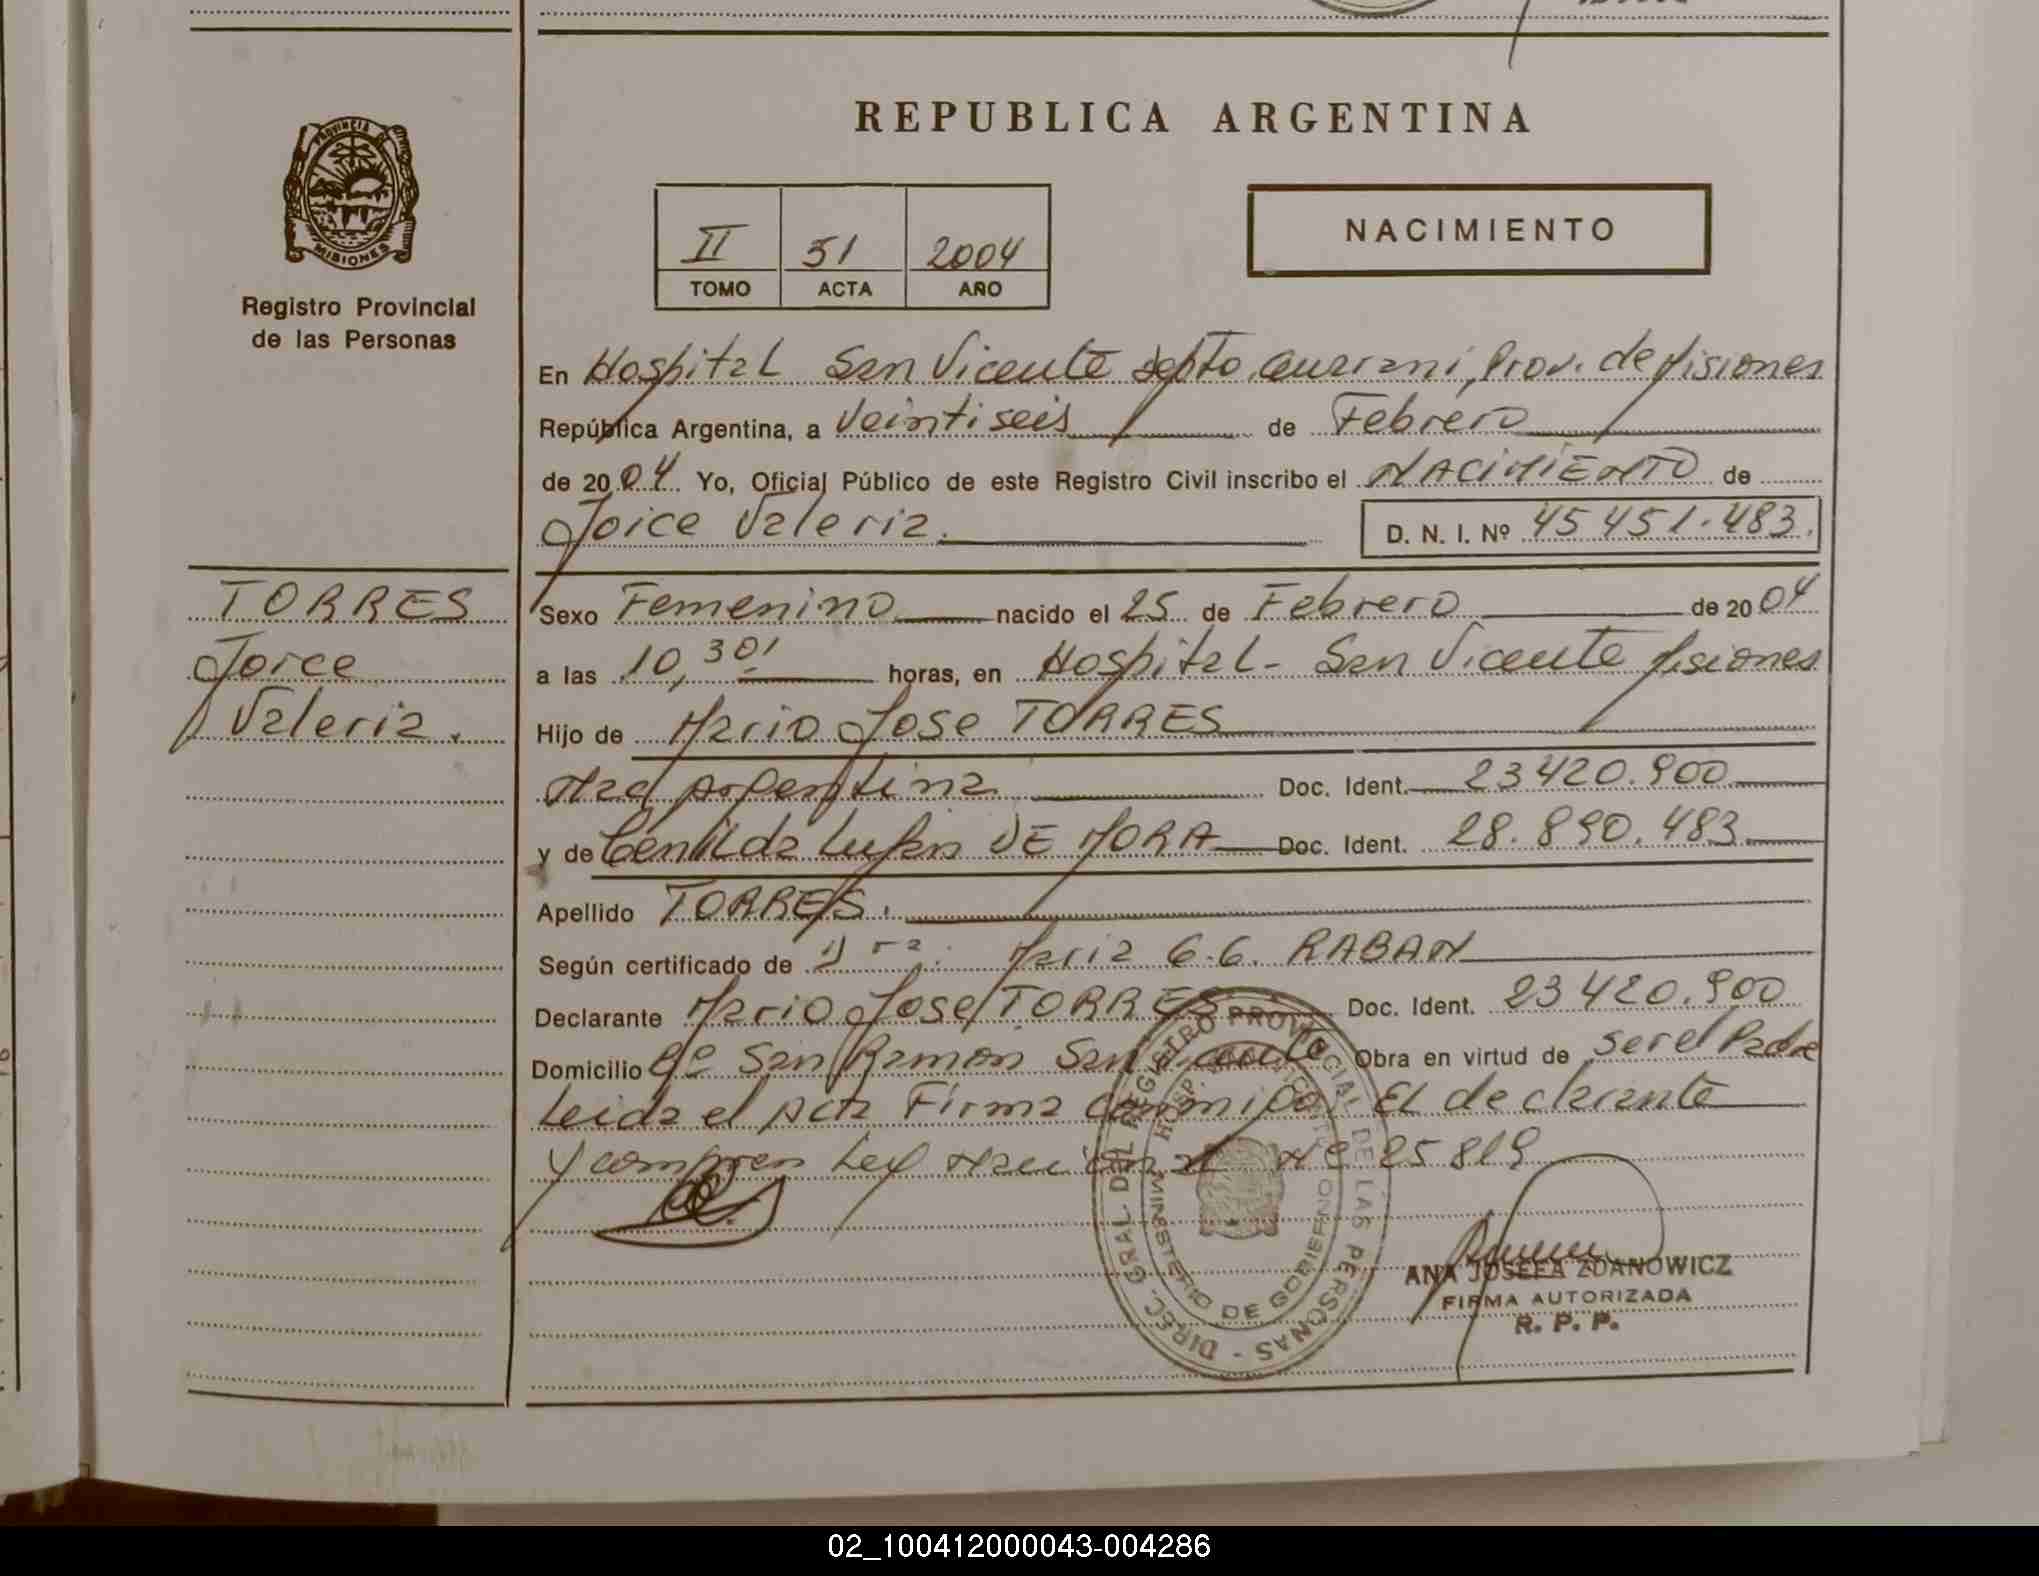 REPUBLICA ARGENTINA
PROVINCIA
MISIONES
Registro Provincial
de las Personas
NACIMIENTO
II 51 2004
TOMO ACTA AÑO
En Hospital San Vicente Depto. Guarani, Prov. de Misiones
República Argentina, a Veintiseis de Febrero
de 2004 Yo, Oficial Público de este Registro Civil inscribo el NACIMIENTO de
Joice Valeria. D. N. I. Nº 45 451.483.
TORRES
Joice
Valeria.
Sexo Femenino nacido el 25 de Febrero de 2004
a las 10,30' horas, en Hospital - San Vicente Misiones
Hijo de Mario Jose TORRES
Nac Argentina Doc. Ident. 23 420.900
y de Cenilda Lujan DE MORA Doc. Ident. 28.890.483
Apellido TORRES.
Según certificado de Dra. Maria G.G. RABAN
Declarante Mario Jose TORRES Doc. Ident. 23 420.900
Domicilio San Ramon San Vicente Obra en virtud de ser el Padre
Leida el Acta Firma conmigo El declarante
y Ley Nacional Nº 25 819
DIREC. GRAL. DEL REGISTRO PROVINCIAL DE LAS PERSONAS -
HOSP. SAN VICENTE
MINISTERIO DE GOBIERNO
ANA JOSEFA ZDANOWICZ
FIRMA AUTORIZADA
R. P. P.
02_100412000043-004286